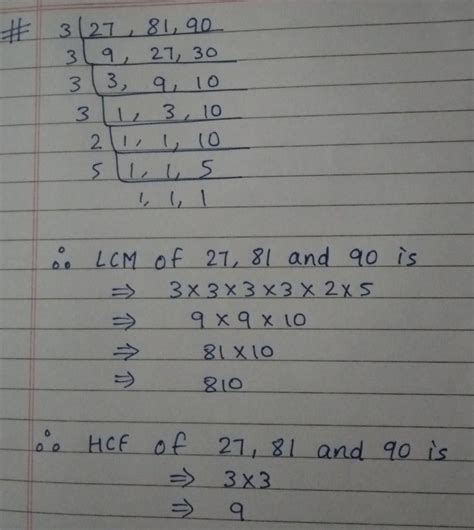 # 3 | 27, 81, 90
3 | 9, 27, 30
3 | 3, 9, 10
3 | 1, 3, 10
2 | 1, 1, 10
5 | 1, 1, 5
1, 1, 1
∴ LCM of 27, 81 and 90 is
⇒ 3×3×3×3×2×5
⇒ 9×9×10
⇒ 81×10
⇒ 810
∴ HCF of 27, 81 and 90 is
⇒ 3×3
⇒ 9